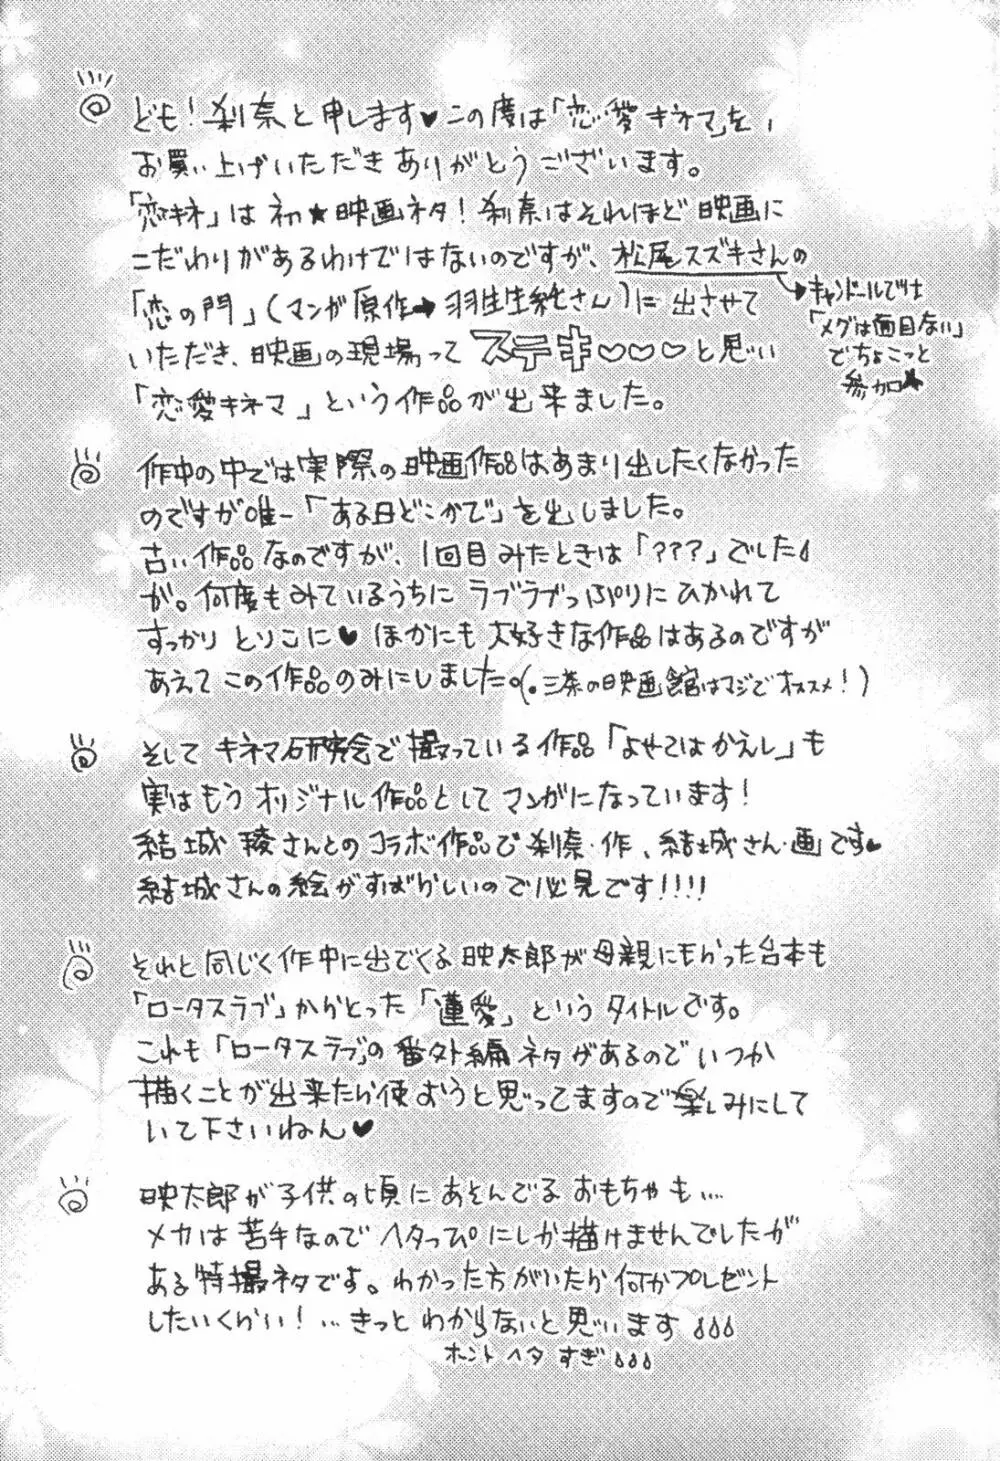 ども！刹奈と申します♥この度は「恋愛キネマ」を、
お買い上げいただきありがとうございます。
「恋キネ」は初★映画ネタ！刹奈はそれほど映画に
こだわりがあるわけではないのですが、松尾スズキさんの
「恋の門」(マンガ原作→羽生生純さん)に出させて
いただき、映画の現場ってステキ♡♡♡と思い
「恋愛キネマ」という作品が出来ました。
→キャンドールでは
「メグは面目ない」
でちょこっと
参加★
作中の中では実際の映画作品はあまり出したくなかった
のですが唯一「ある日どこかで」を出しました。
古い作品なのですが、1回目みたときは「???」でした
が。何度もみているうちにラブラブっぷりにひかれて
すっかりとりこに♥ほかにも大好きな作品はあるのですが
あえてこの作品のみにしました。(.三茶の映画館はマジでオススメ！)
そしてキネマ研究会で撮っている作品「よせてはかえし」も
実はもうオリジナル作品としてマンガになっています！
結城稜さんとのコラボ作品で刹奈・作、結城さん・画です♥
結城さんの絵がすばらしいので必見です!!!!
それと同じく作中に出てくる映太郎が母親にもらった台本も
「ロータスラブ」からとった「蓮愛」というタイトルです。
これも「ロータスラブ」の番外編ネタがあるのでいつか
描くことが出来たら使おうと思ってますので楽しみにして
いて下さいねん♥
映太郎が子供の頃にあそんでるおもちゃも…
メカは苦手なのでヘタっぴにしか描けませんでしたが
ある特撮ネタですよ。わかった方がいたら何かプレゼント
したいくらい！…きっとわからないと思います
ホントヘタすぎ